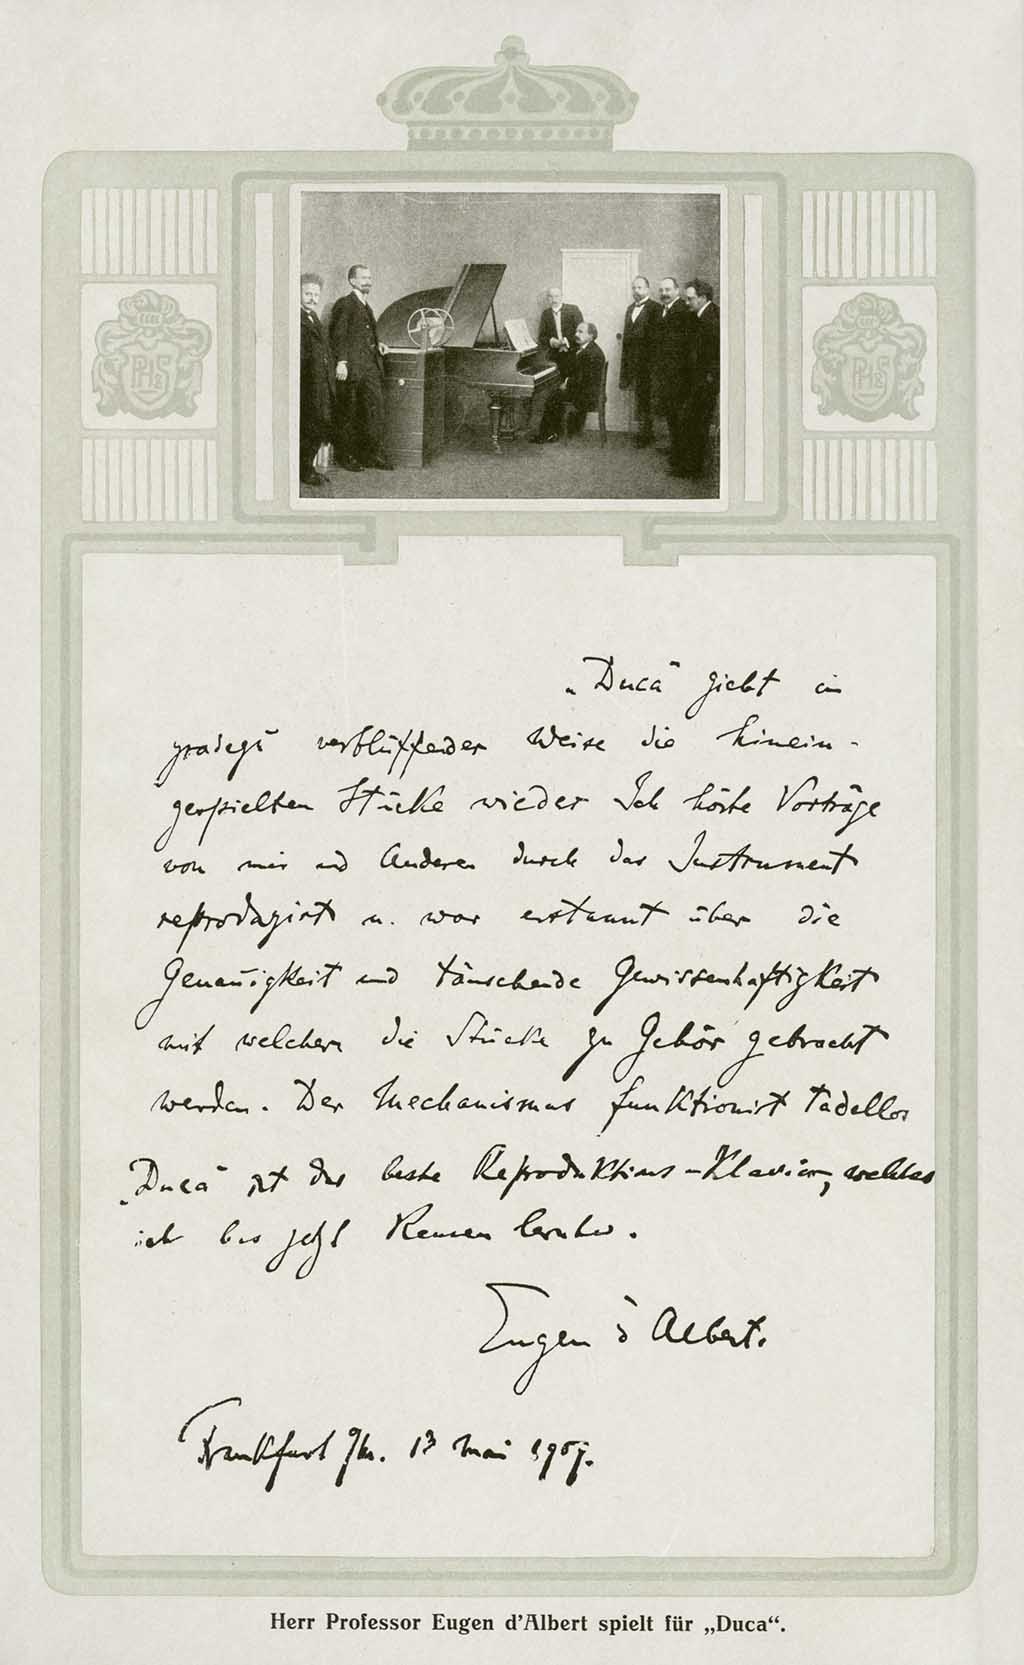 PH&S
PH&S
„Duca“ giebt in
gradezu verblüffender Weise die hinein-
gespielten Stücke wieder Ich hörte Vorträge
von mir und Anderen durch das Instrument
reproduzirt u. war erstaunt über die
Genauigkeit und täuschende Gewissenhaftigkeit
mit welchem die Stücke zu Gehör gebracht
werden. Der Mechanismus funktionirt tadellos
„Duca“ ist das beste Reproduktions-Klavier, welches
ich bis jetzt kennen lernte.
Eugen d'Albert.
Frankfurt a/m. 13 Mai 1909.
Herr Professor Eugen d'Albert spielt für „Duca“.